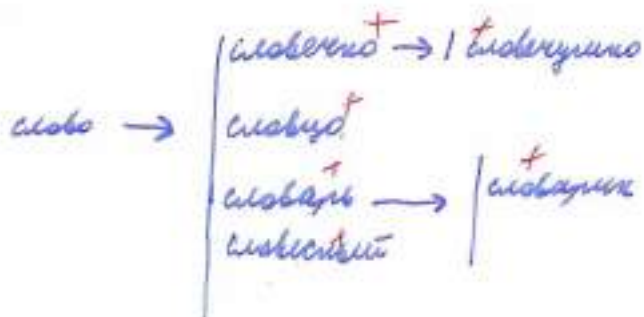 словечко → | словечушко
слово →
словцо
словарь → | словарик
словесный